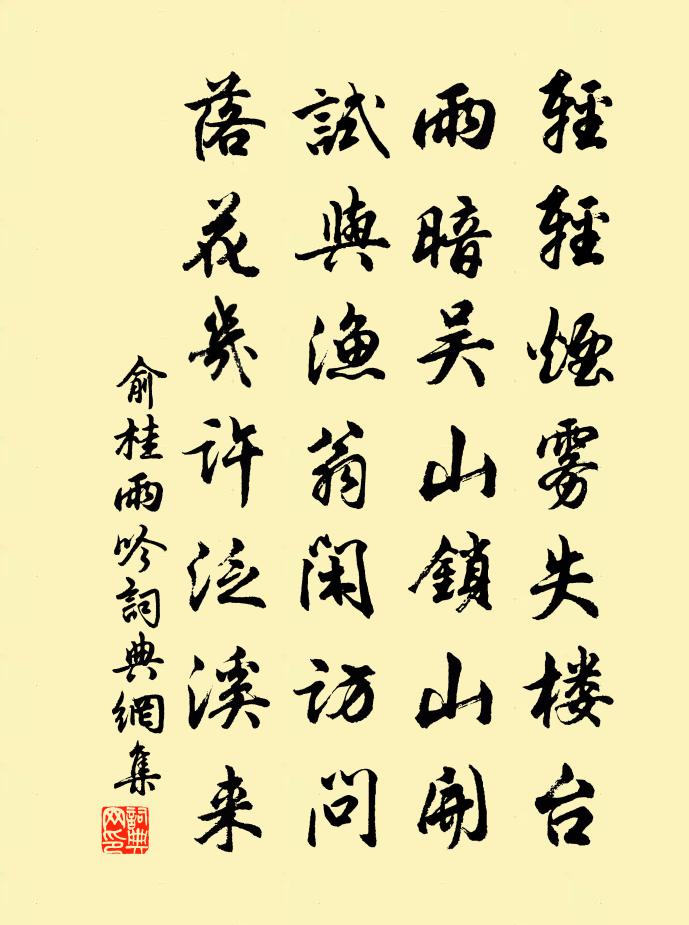 輕輕煙雾失楼台
雨暗吴山鎖山開
試與漁翁閑訪問
落花幾许泛溪来
俞桂雨吟詞典網集
詞典网印